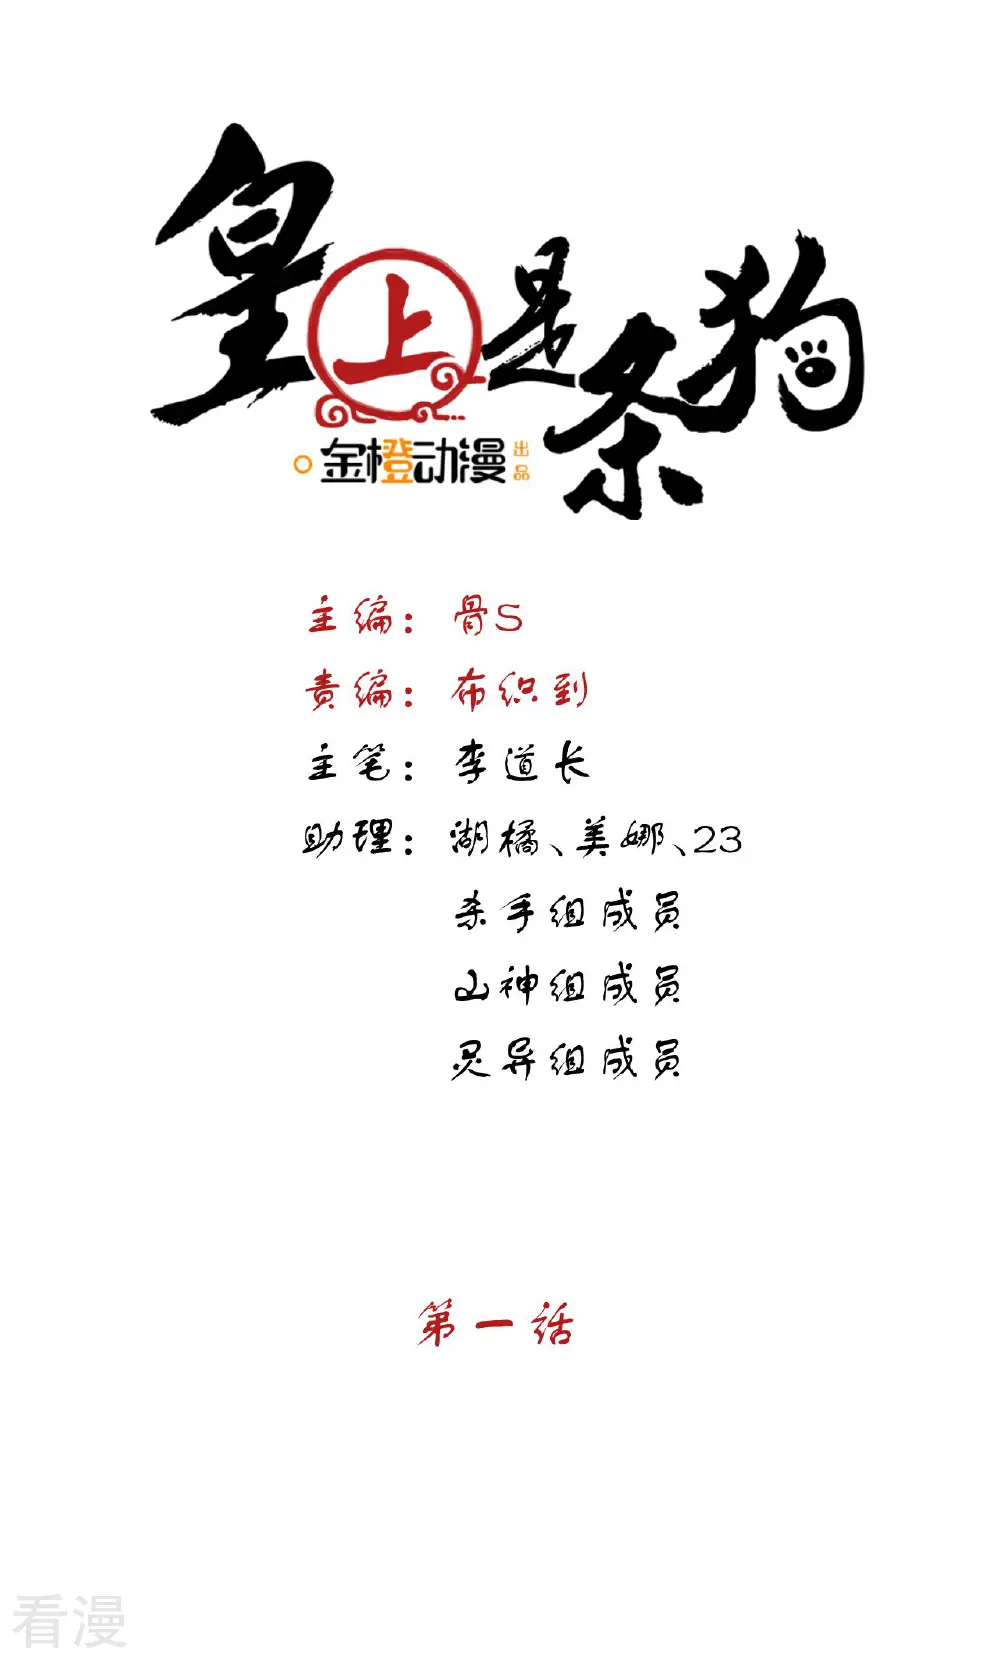 皇上是条狗
金橙动漫出品
主编：骨S
责编：布织到
主笔：李道长
助理：湖橘、美娜、23
杀手组成员
山神组成员
灵异组成员
第一话
看漫